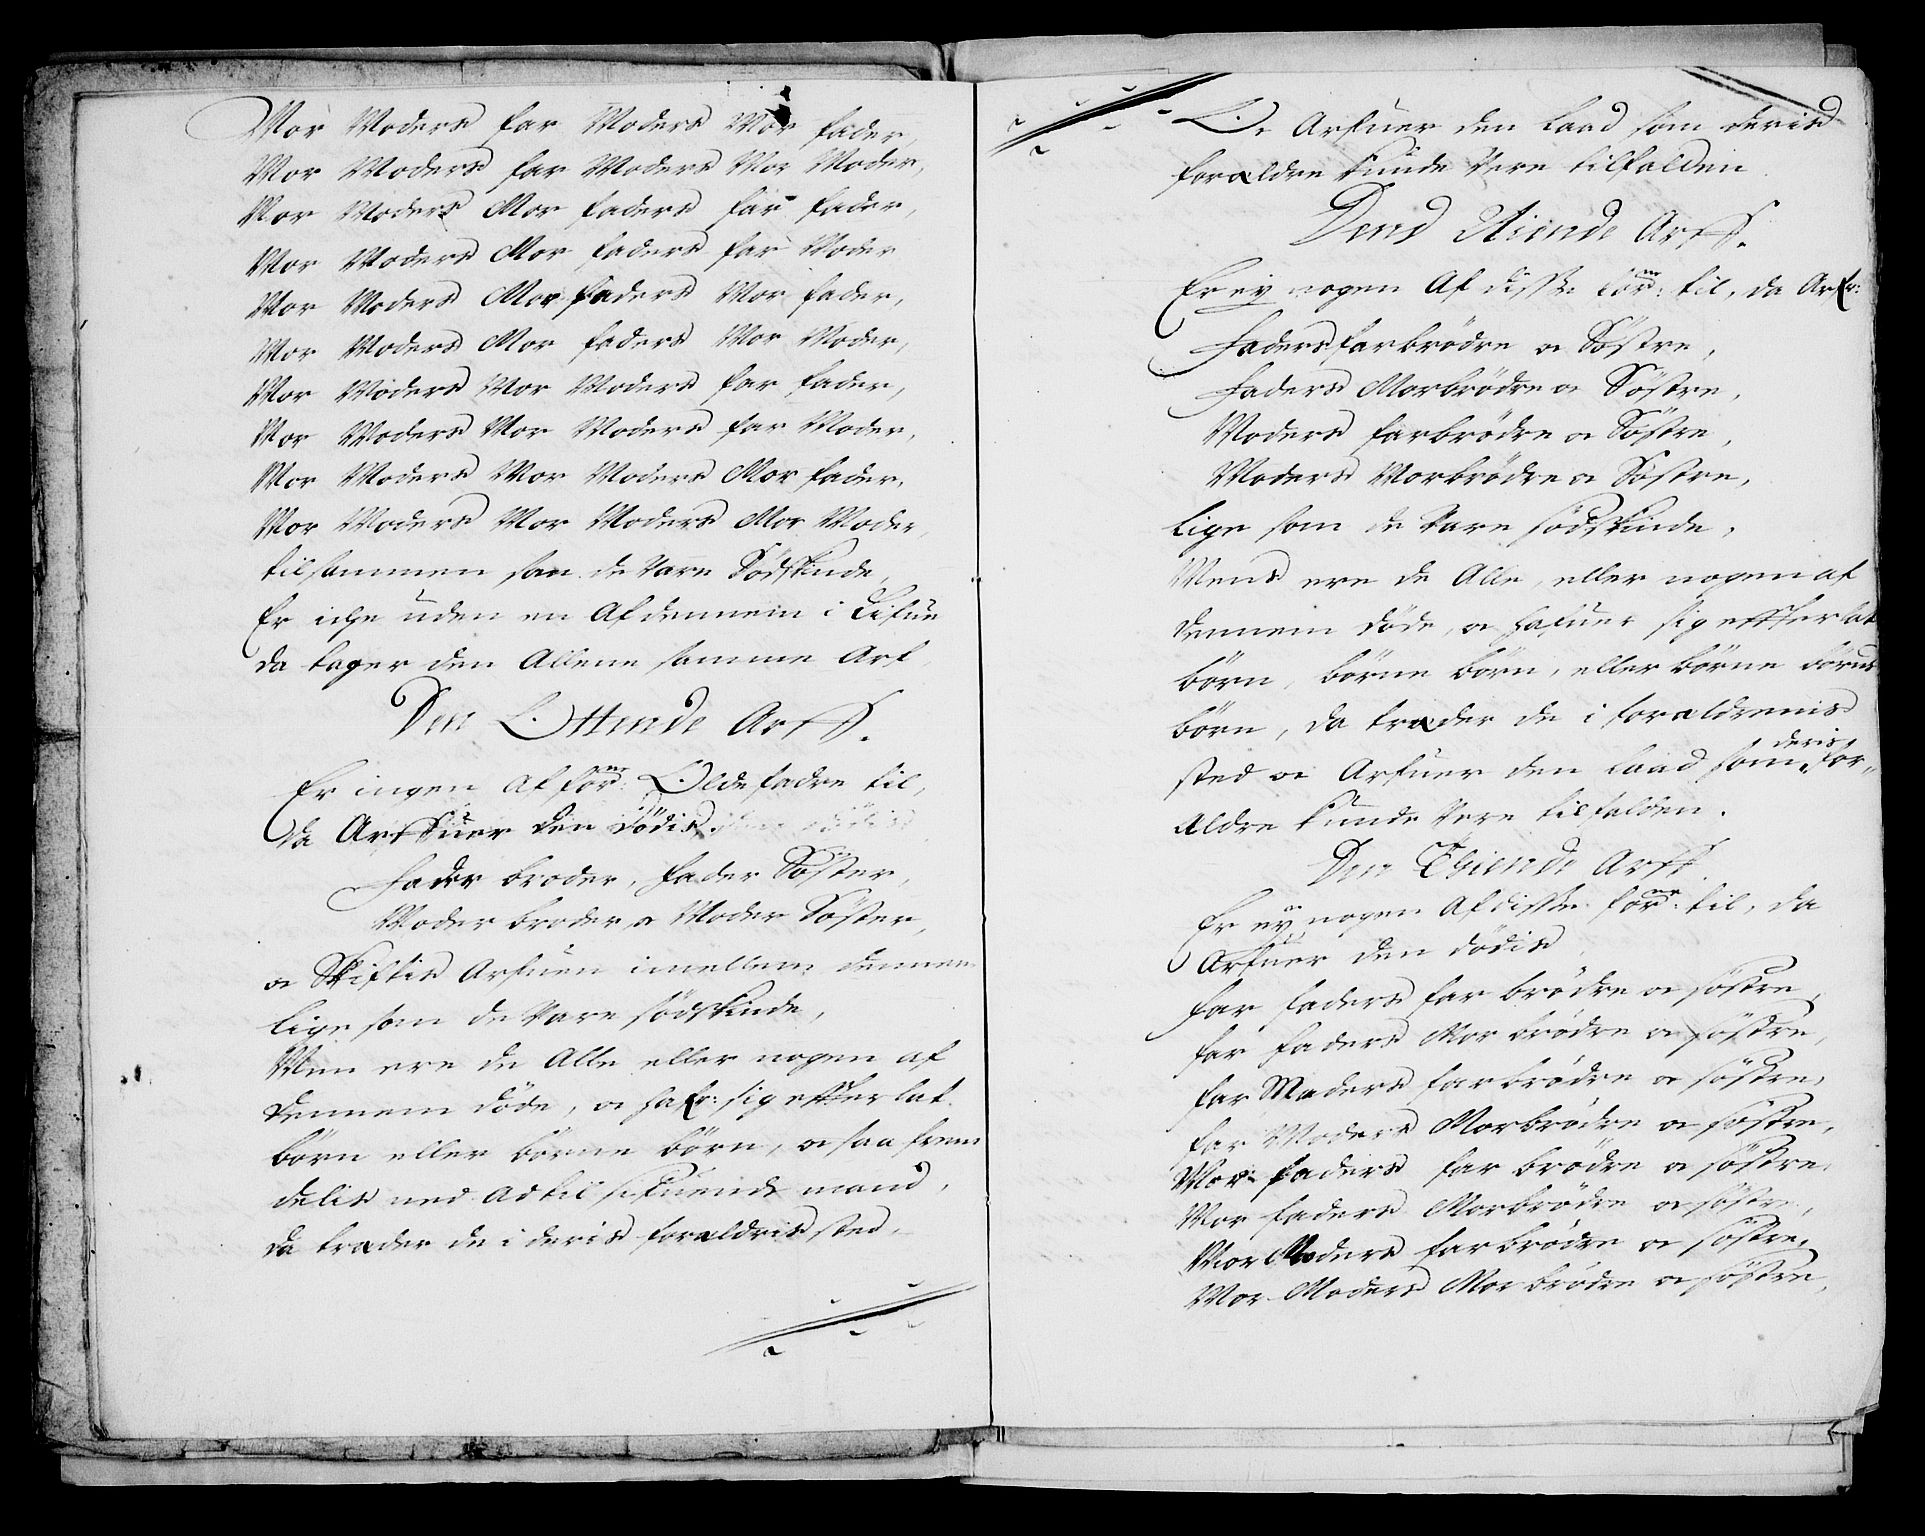 Mor Moders far Moders Mor fader,
Mor Moders far Moders Mor Moder,
Mor Moders Mor faders far fader,
Mor Moders Mor faders far Moder
Mor Moders Mor faders Mor fader,
Mor Moders Mor faders Mor Moder,
Mor Moders Mor Moders far fader,
Mor Moders Mor Moders far Moder,
Mor Moders Mor Moders Mor fader,
Mor Moders Mor Moders Mor Moder,
tilsammen som de vare Sødskinde,
Er iche uden en Af dennem i Lifue
da tager den Allene samme Arf,
Den Ottende Arff.
Er ingen af forne: Oldefadre til,
da Arffuer den dødis
Fader broder, fader Søster,
Moder broder, oc Moder Søster,
oc Skiftis Arfuen imellem dennem
lige som de vare sødskinde,
Men ere de Alle eller nogen af
dennem døde, oc hafr: sig effterlat
børn eller børne børn, oc saa frem
delis ned Ad til siuende mand,
da træder de i deris forældris sted,
Oc Arfuer den laad som deris
forældre kunde vere tilfalden
Dend Niende Arff.
Er ey nogen Af disse forne: til, da Arfr:
Faders farbrødre oc Søstre,
Faders Morbrødre oc Søstre,
Moders farbrødre oc Søstre,
Moders Morbrødre oc Søstre,
lige som de vare sødskinde,
Mens ere de Alle, eller nogen af
dennem døde, oc hafuer sig effterlat
børn, børne børn, eller børne børns
børn, da træder de i forældrenis
sted oc Arfuer den laad som deris for„
ældre kunde vere tilfalden.
Den Thiende Arff.
Er ey nogen Af disse forne: til, da
Arfuer den dødis
far faders far brødre oc søstre,
far faders Mor brødre oc søstre,
far Moders farbrødre oc søstre,
far Moders Morbrødre oc søstre,
Mor faders far brødre oc søstre,
Mor faders Morbrødre oc søstre,
Mor Moders farbrødre oc søstre,
Mor Moders Mor brødre oc søstre,